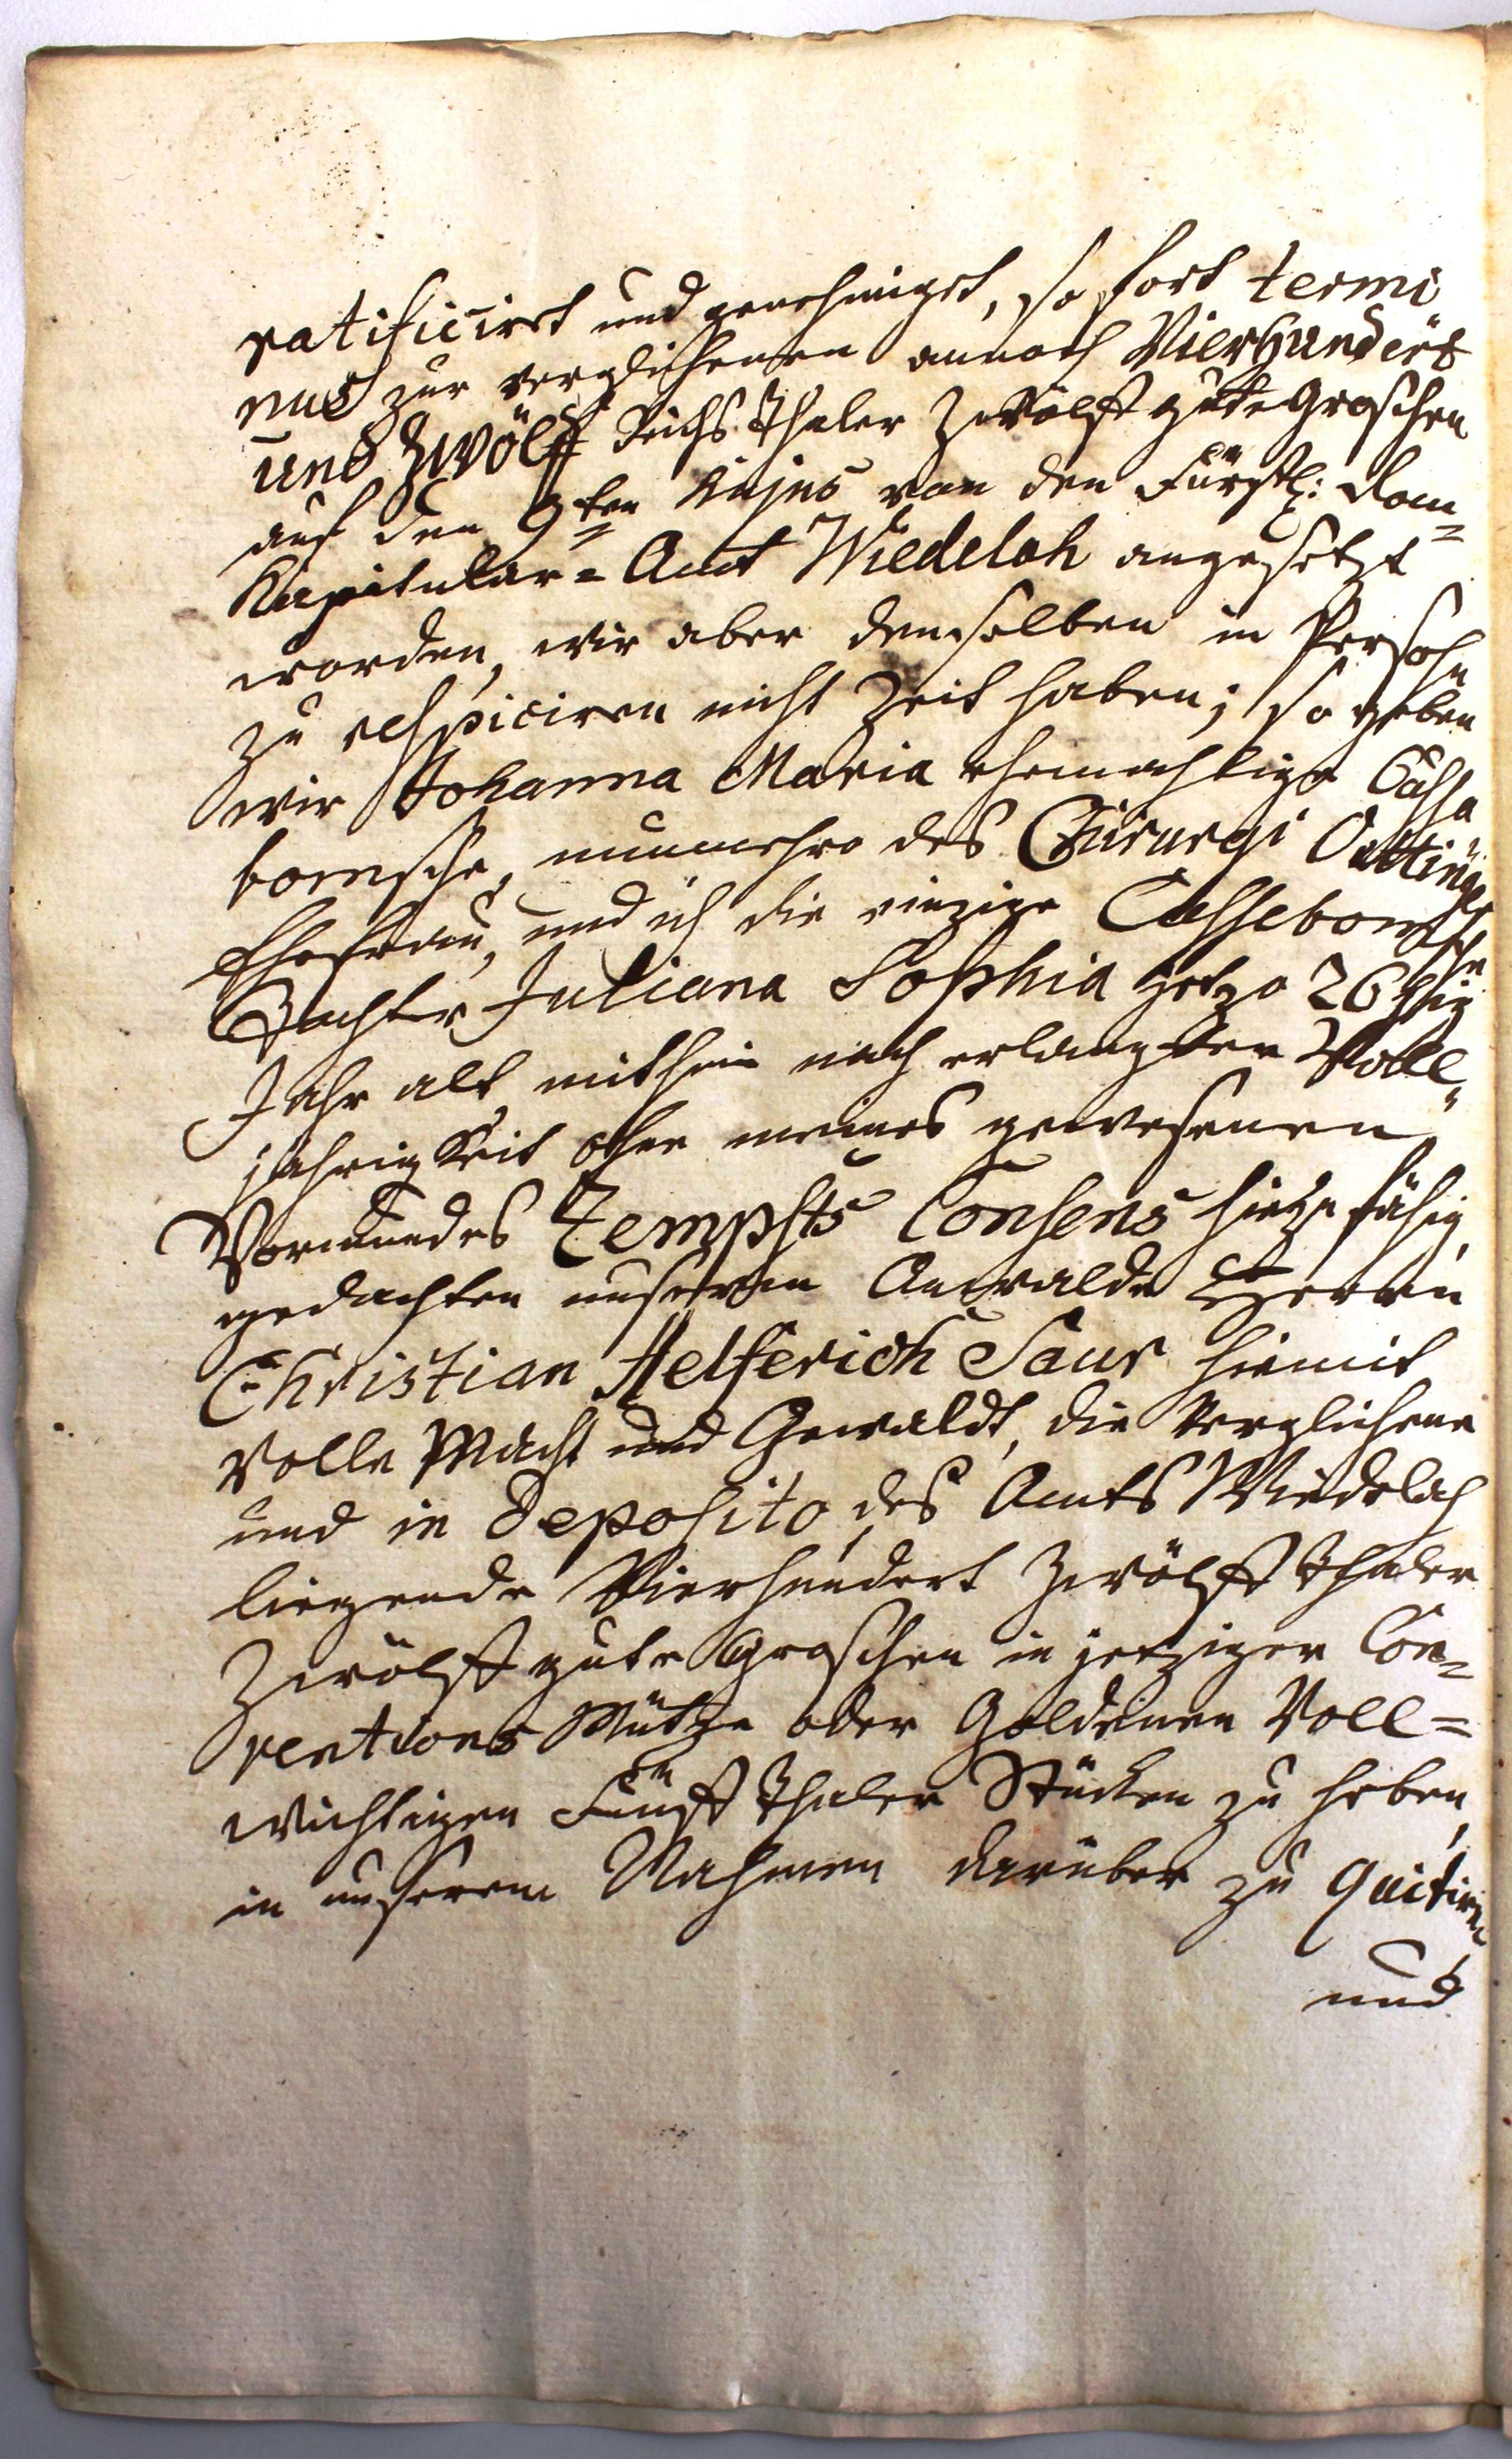 ratificirt und genehmiget, so fort termi
nus zur verglichenen annoch Vierhundert
und Zwölff Reichs Thaler Zwölff gute Groschen
auf den 9ten hujus von den Fürstl: Dom=
Kapitular=Amt Wiedelah angesetzt
worden, wir aber denselben in Persohn
zu respiciren nicht Zeit haben; so geben
wir Johanna Maria ehemahlige Casse
bomsche, nunmehro des Chirurgi Oettings
Ehefrau, und ich die einzige Cassebomsche
Tochter Juliana Sophia jetzo 26tzig
Jahr alt mithin nach erlangter Voll=
jährigkeit ohne meines gewesenen
Vormundes Zempfts Consens hiezu fähig,
gedachten unserem Anwalde Herrn
Christian Helferich Saur hiemit
volle Macht und Gewaldt, die verglichene
und in Deposito des Amts Wiedelah
liegende Vierhundert Zwölff Thaler
Zwölff gute Groschen in jetziger Con=
ventions Müntze oder Goldenen Voll=
wichtigen Fünff Thaler Stücken zu heben,
in unserem Nahmen darüber zu quitiren
und